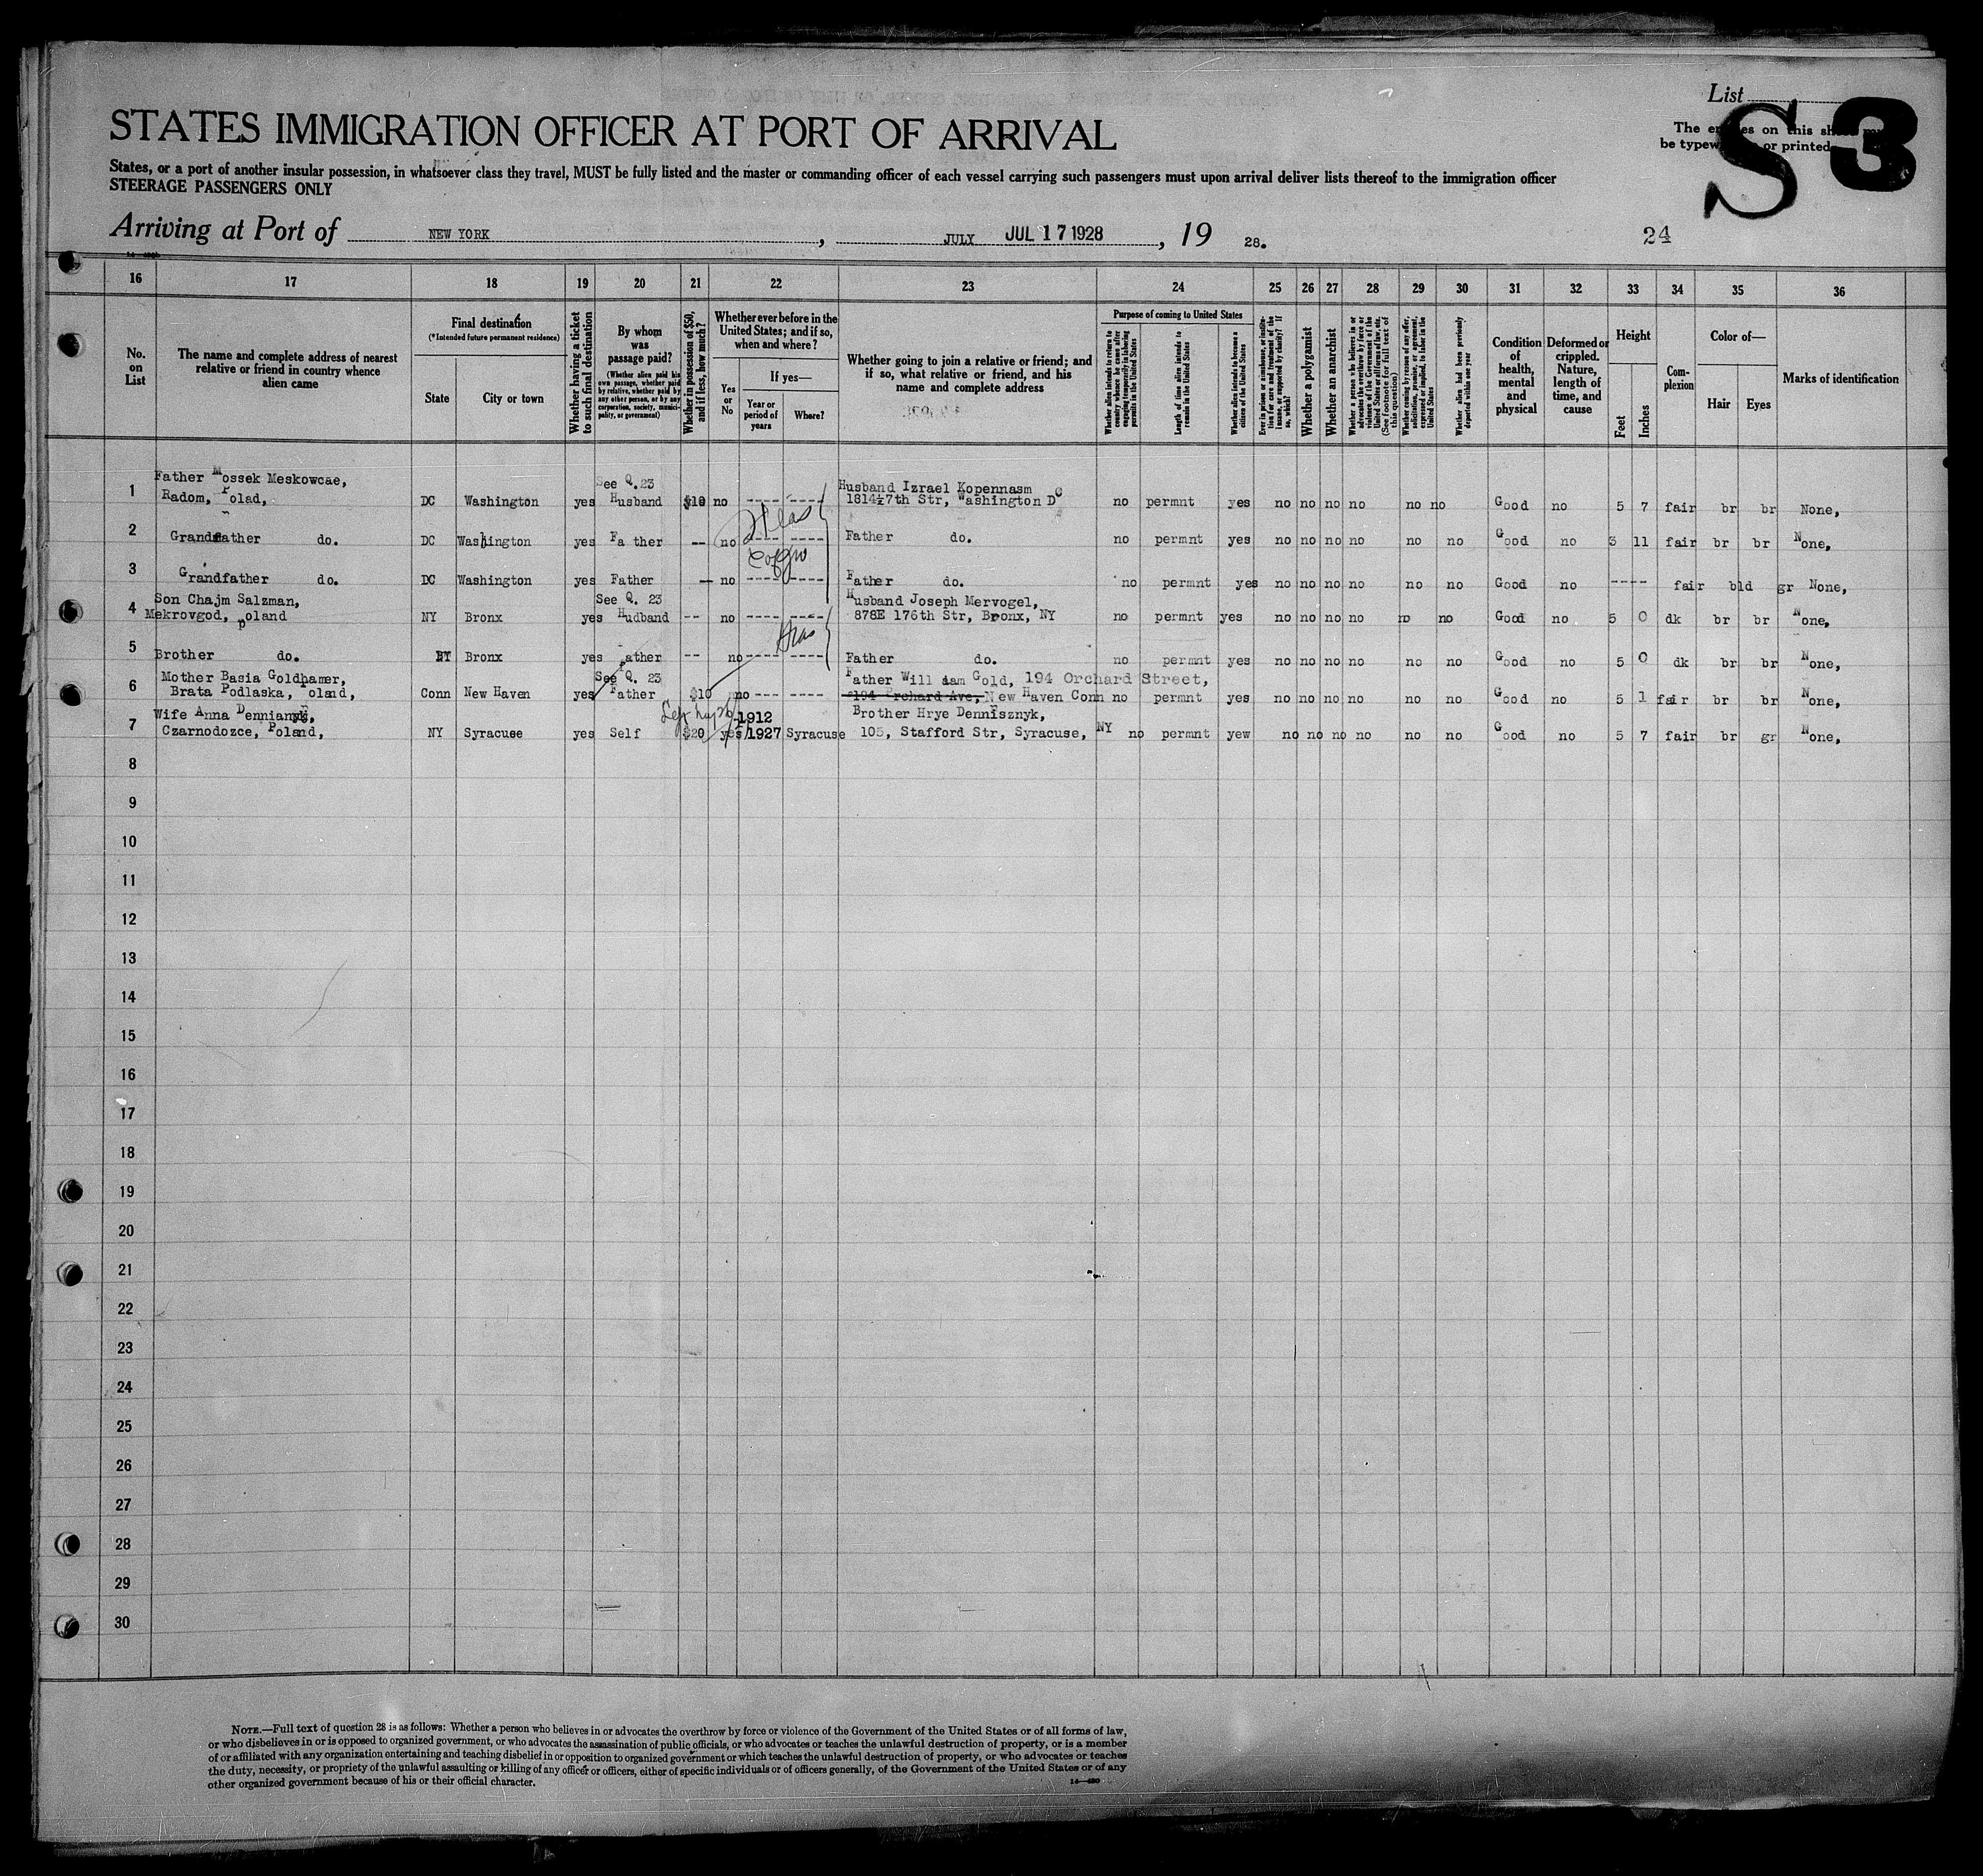 List
S 3
The entries on this sheet must
be typewritten or printed
STATES IMMIGRATION OFFICER AT PORT OF ARRIVAL
States, or a port of another insular possession, in whatsoever class they travel, MUST be fully listed and the master or commanding officer of each vessel carrying such passengers must upon arrival deliver lists thereof to the immigration officer
STEERAGE PASSENGERS ONLY
Arriving at Port of NEW YORK , JULY JUL 17 1928 , 19 28. 24
16 17 18 19 20 21 22 23 24 25 26 27 28 29 30 31 32 33 34 35 36
No. on List
The name and complete address of nearest relative or friend in country whence alien came
Final destination
(*Intended future permanent residence)
State
City or town
Whether having a ticket to such final destination
By whom was passage paid?
(Whether alien paid his own passage, whether paid by relative, whether paid by any other person, or by any corporation, society, municipality, or government)
Whether in possession of $50, and if less, how much?
Whether ever before in the United States; and if so, when and where?
Yes or No
If yes—
Year or period of years
Where?
Whether going to join a relative or friend; and if so, what relative or friend, and his name and complete address
Purpose of coming to United States
Whether alien intends to return to country whence he came after engaging temporarily in laboring pursuits in the United States
Length of time alien intends to remain in the United States
Whether alien intends to become a citizen of the United States
Ever in prison or almshouse, or institution for care and treatment of the insane, or supported by charity? If so, which?
Whether a polygamist
Whether an anarchist
Whether a person who believes in or advocates the overthrow by force or violence of the Government of the United States or all forms of law, etc. (See footnote for full text of this question)
Whether coming by reason of any offer, solicitation, promise, or agreement, expressed or implied, to labor in the United States
Whether alien had been previously deported within one year
Condition of health, mental and physical
Deformed or crippled. Nature, length of time, and cause
Height
Feet
Inches
Complexion
Color of—
Hair
Eyes
Marks of identification
Father Mossek Meskowcae, See Q.23 Husband Izrael Kopennasm
1 Radom, Polad, DC Washington yes Husband $10 no ---- ---- 1814½7th Str, Washington DC no permnt yes no no no no no no Good no 5 7 fair br br None,
2 Grandfather do. DC Washington yes Father -- no ---- ---- Father do. no permnt yes no no no no no no Good no 3 11 fair br br None,
3 Grandfather do. DC Washington yes Father -- no ---- ---- Father do. no permnt yes no no no no no no Good no ---- fair bld gr None,
Son Chajm Salzman, See Q. 23 Husband Joseph Mervogel,
4 Mekrovgod, Poland NY Bronx yes Hudband -- no ---- ---- 878E 176th Str, Bronx, NY no permnt yes no no no no no no Good no 5 0 dk br br None,
5 Brother do. NY Bronx yes Father -- no ---- ---- Father do. no permnt yes no no no no no no Good no 5 0 dk br br None,
Mother Basia Goldhamer, See Q. 23 Father William Gold, 194 Orchard Street,
6 Brata Podlaska, Poland, Conn New Haven yes Father $10 no ---- ---- 194 Orchard Ave, New Haven Conn no permnt yes no no no no no no Good no 5 1 fair br br None,
Wife Anna Dennianyk, 1912 Brother Hrye Dennisznyk,
7 Czarnodozce, Poland, NY Syracuse yes Self $20 yes/1927 Syracuse 105, Stafford Str, Syracuse, NY no permnt yew no no no no no no Good no 5 7 fair br gr None,
8
9
10
11
12
13
14
15
16
17
18
19
20
21
22
23
24
25
26
27
28
29
30
NOTE.—Full text of question 28 is as follows: Whether a person who believes in or advocates the overthrow by force or violence of the Government of the United States or of all forms of law,
or who disbelieves in or is opposed to organized government, or who advocates the assassination of public officials, or who advocates or teaches the unlawful destruction of property, or is a member
of or affiliated with any organization entertaining and teaching disbelief in or opposition to organized government or which teaches the unlawful destruction of property, or who advocates or teaches
the duty, necessity, or propriety of the unlawful assaulting or killing of any officer or officers, either of specific individuals or of officers generally, of the Government of the United States or of any
other organized government because of his or their official character.
14—480